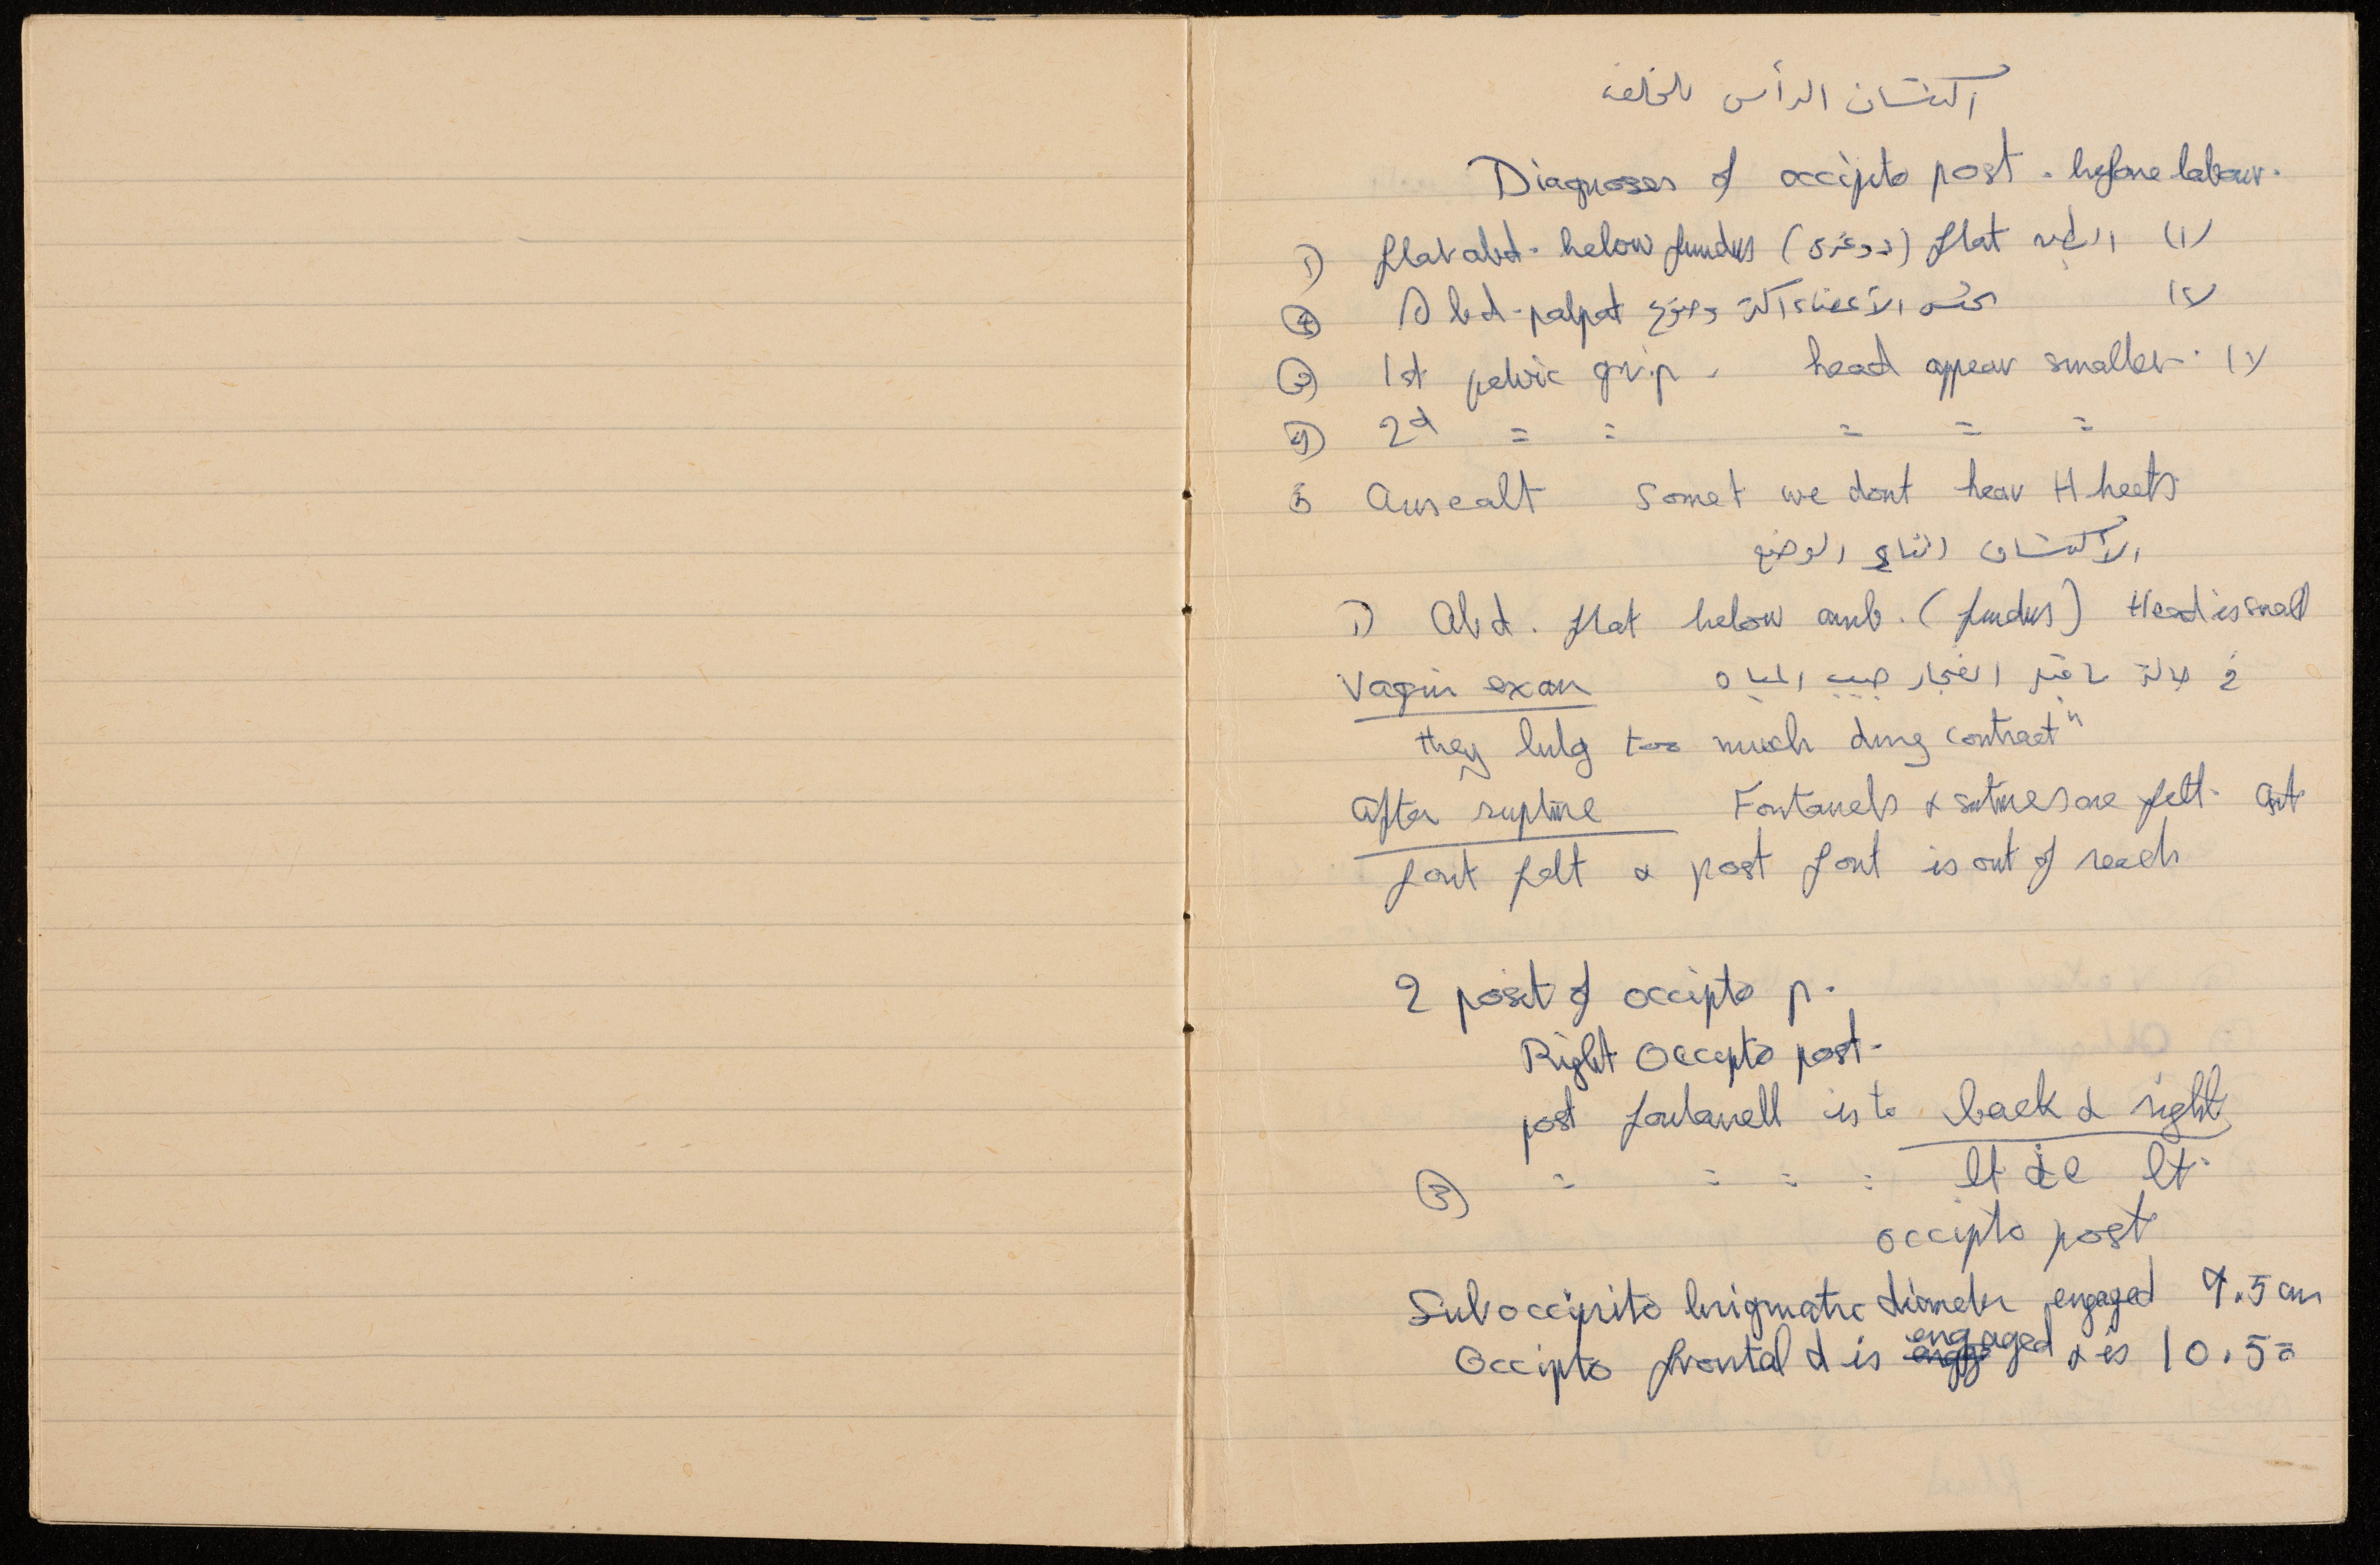 اكتشاف الرأس الخلفي
Diagnoses of occipto post. before labour.
1) flat abd. below fundus (دوغري) flat البطن (١)
② Abd. palpat نحس الأعضاء اكثر وضوح (٢
③ 1st pelvic grip. head appear smaller. (٣
④ 2d = = = = =
5 Auscalt Somet we dont hear H beets
الاكتشاف اثناء الوضع
1) Abd. flat below amb. (fundus) Head is small
Vagin exam في حالة ما قبل انفجار جيب المياه
they bulg too much dung contractⁿ
After rupture Fontanels & sutures are felt. Ant
font felt & post font is out of reach
2 posit of occipto p.
Right Occepto post.
post fontanell is to back & right
② = = = = lt lt.
occipto post
Suboccipito brigmatic diameter engaged 9.5 cm
Occipto frontal d is engaged & is 10.5 =